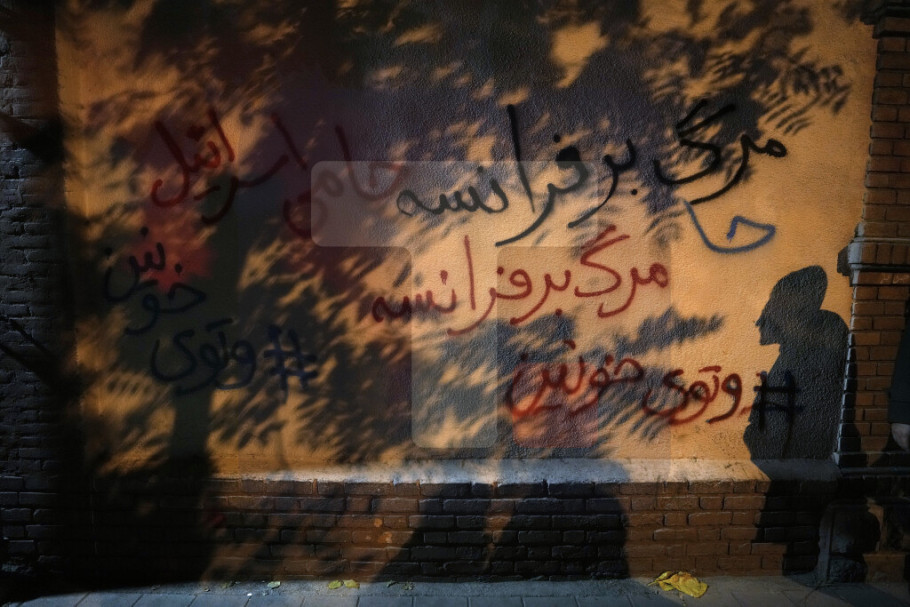 مرگ بر فرانسه
حامی اسرائیل
حا
مرگ بر فرانسه
#وتوی خونین
#وتوی
خونین